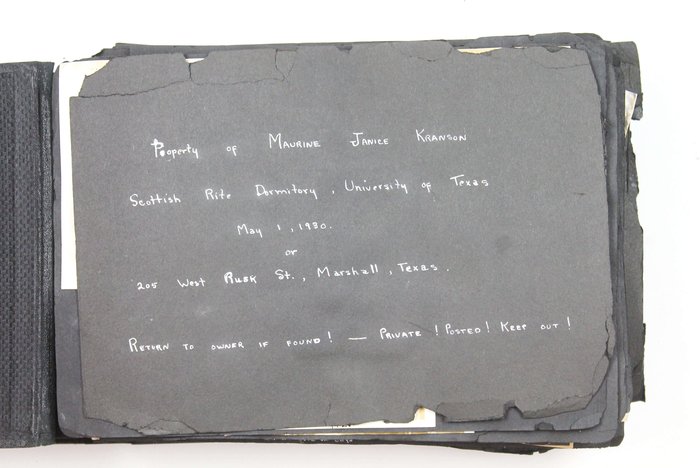 Property of MAURINE JANICE KRANSON
Scottish Rite Dormitory, University of Texas
May 1, 1930.
or
205 West RUSK St., Marshall, Texas.
RETURN TO OWNER IF FOUND! — PRIVATE! POSTED! KEEP OUT!